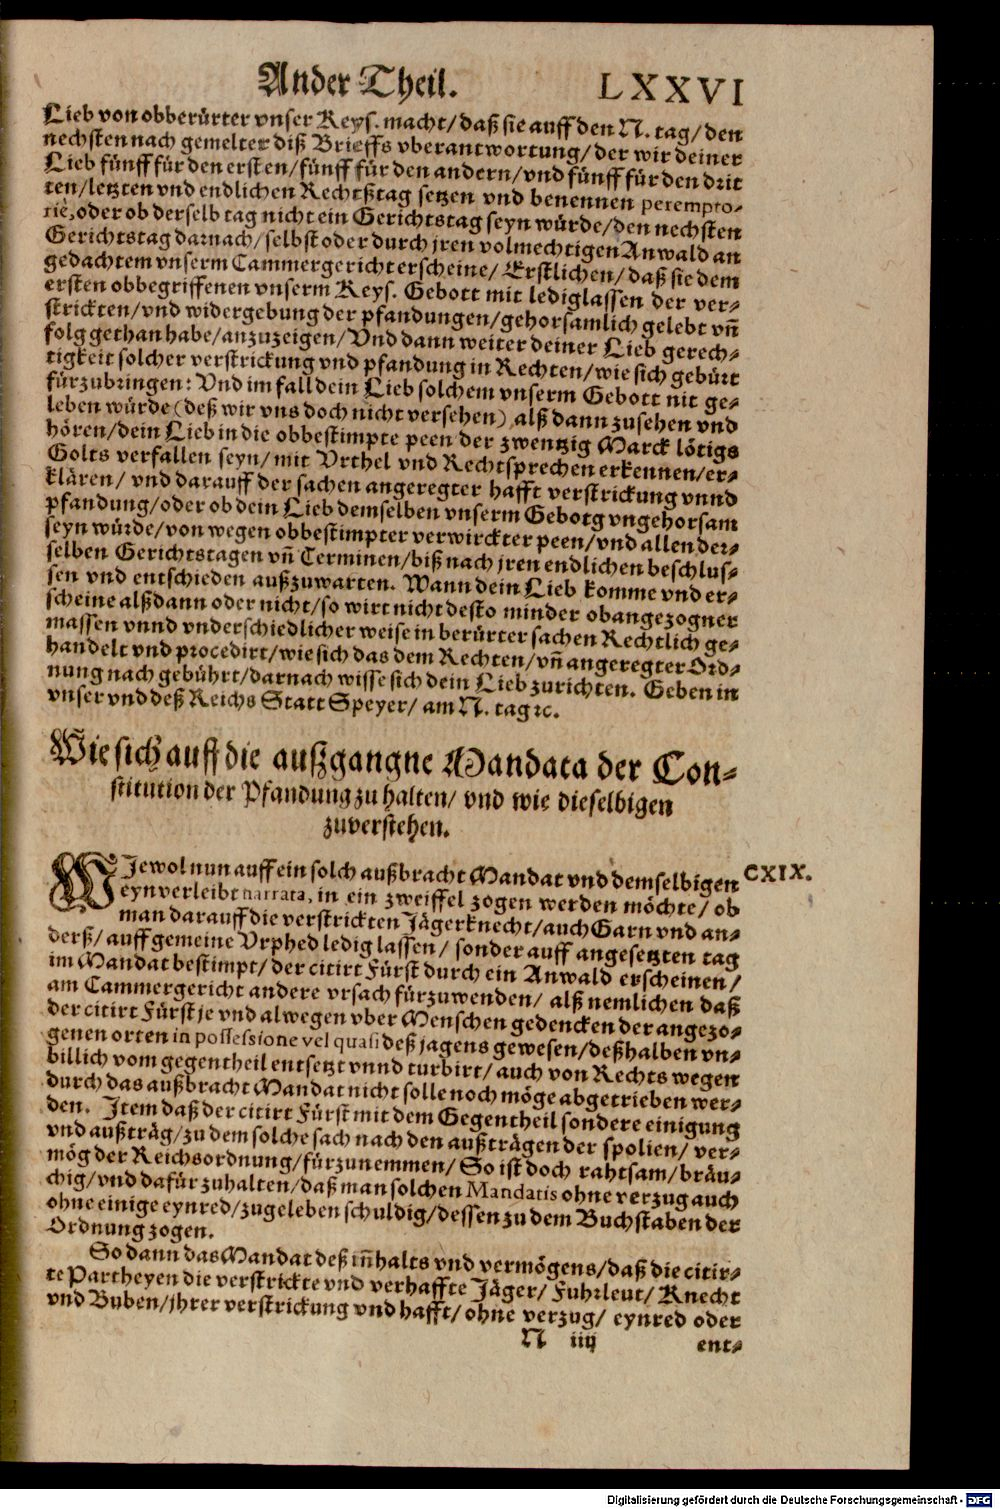 Ander Theil. LXXVI
Lieb von obberürter vnser Keys. macht/ daß sie auff den N. tag/ den
nechsten nach gemelter diß Brieffs vberantwortung/ der wir deiner
Lieb fünff für den ersten/ fünff für den andern/ vnd fünff für den drit
ten/ letzten vnd endlichen Rechtßtag setzen vnd benennen perempto-
riè, oder ob derselb tag nicht ein Gerichtstag seyn würde/ den nechsten
Gerichtstag darnach/ selbst oder durch jren volmechtigen Anwald an
gedachtem vnserm Cammergericht erscheine/ Erstlichen/ daß sie dem
ersten obbegriffenen vnserm Keys. Gebott mit lediglassen der ver-
strickten/ vnd widergebung der pfandungen/ gehorsamlich gelebt vñ
folg gethan habe/ anzuzeigen/ Vnd dann weiter deiner Lieb gerech-
tigkeit solcher verstrickung vnd pfandung in Rechten/ wie sich gebürt
fürzubringen: Vnd im fall dein Lieb solchem vnserm Gebott nit ge-
leben würde (deß wir vns doch nicht versehen) alß dann zusehen vnd
hören/ dein Lieb in die obbestimpte peen der zwentzig Marck lötigs
Golts verfallen seyn/ mit Vrthel vnd Rechtsprechen erkennen/ er-
klären/ vnd darauff der sachen angeregter hafft verstrickung vnnd
pfandung/ oder ob dein Lieb demselben vnserm Gebotg vngehorsam
seyn würde/ von wegen obbestimpter verwirckter peen/ vnd allen der-
selben Gerichtstagen vñ Terminen/ biß nach jren endlichen beschlus-
sen vnd entschieden außzuwarten. Wann dein Lieb komme vnd er-
scheine alßdann oder nicht/ so wirt nicht desto minder obangezogner
massen vnnd vnderschiedlicher weise in berürter sachen Rechtlich ge-
handelt vnd procedirt/ wie sich das dem Rechten/ vñ angeregter Ord-
nung nach gebührt/ darnach wisse sich dein Lieb zurichten. Geben in
vnser vnd deß Reichs Statt Speyer/ am N. tag ꝛc.
Wie sich auff die außgangne Mandata der Con-
stitution der Pfandung zu halten/ vnd wie dieselbigen
zuverstehen.
WJewol nun auff ein solch außbracht Mandat vnd demselbigen CXIX.
eynverleibt narrata, in ein zweiffel zogen werden möchte/ ob
man darauff die verstrickten Jägerknecht/ auch Garn vnd an-
derß/ auff gemeine Vrphed ledig lassen/ sonder auff angesetzten tag
im Mandat bestimpt/ der citirt Fürst durch ein Anwald erscheinen/
am Cammergericht andere vrsach fürzuwenden/ alß nemlichen daß
der citirt Fürst je vnd alwegen vber Menschen gedencken der angezo-
genen orten in possessione vel quasi deß jagens gewesen/ deßhalben vn-
billich vom gegentheil entsetzt vnnd turbirt/ auch von Rechts wegen
durch das außbracht Mandat nicht solle noch möge abgetrieben wer-
den. Jtem daß der citirt Fürst mit dem Gegentheil sondere einigung
vnd außträg/ zu dem solche sach nach den außträgen der spolien/ ver-
mög der Reichsordnung/ fürzunemmen/ So ist doch rahtsam/ bräu-
chig/ vnd dafür zuhalten/ daß man solchen Mandatis ohne verzug auch
ohne einige eynred/ zugeleben schuldig/ dessen zu dem Buchstaben der
Ordnung zogen.
So dann das Mandat deß iñhalts vnd vermögens/ daß die citir-
te Partheyen die verstrickte vnd verhaffte Jäger/ Fuhrleut/ Knecht
vnd Buben/ jhrer verstrickung vnd hafft/ ohne verzug/ eynred oder
N iiij ent-
Digitalisierung gefördert durch die Deutsche Forschungsgemeinschaft - DFG